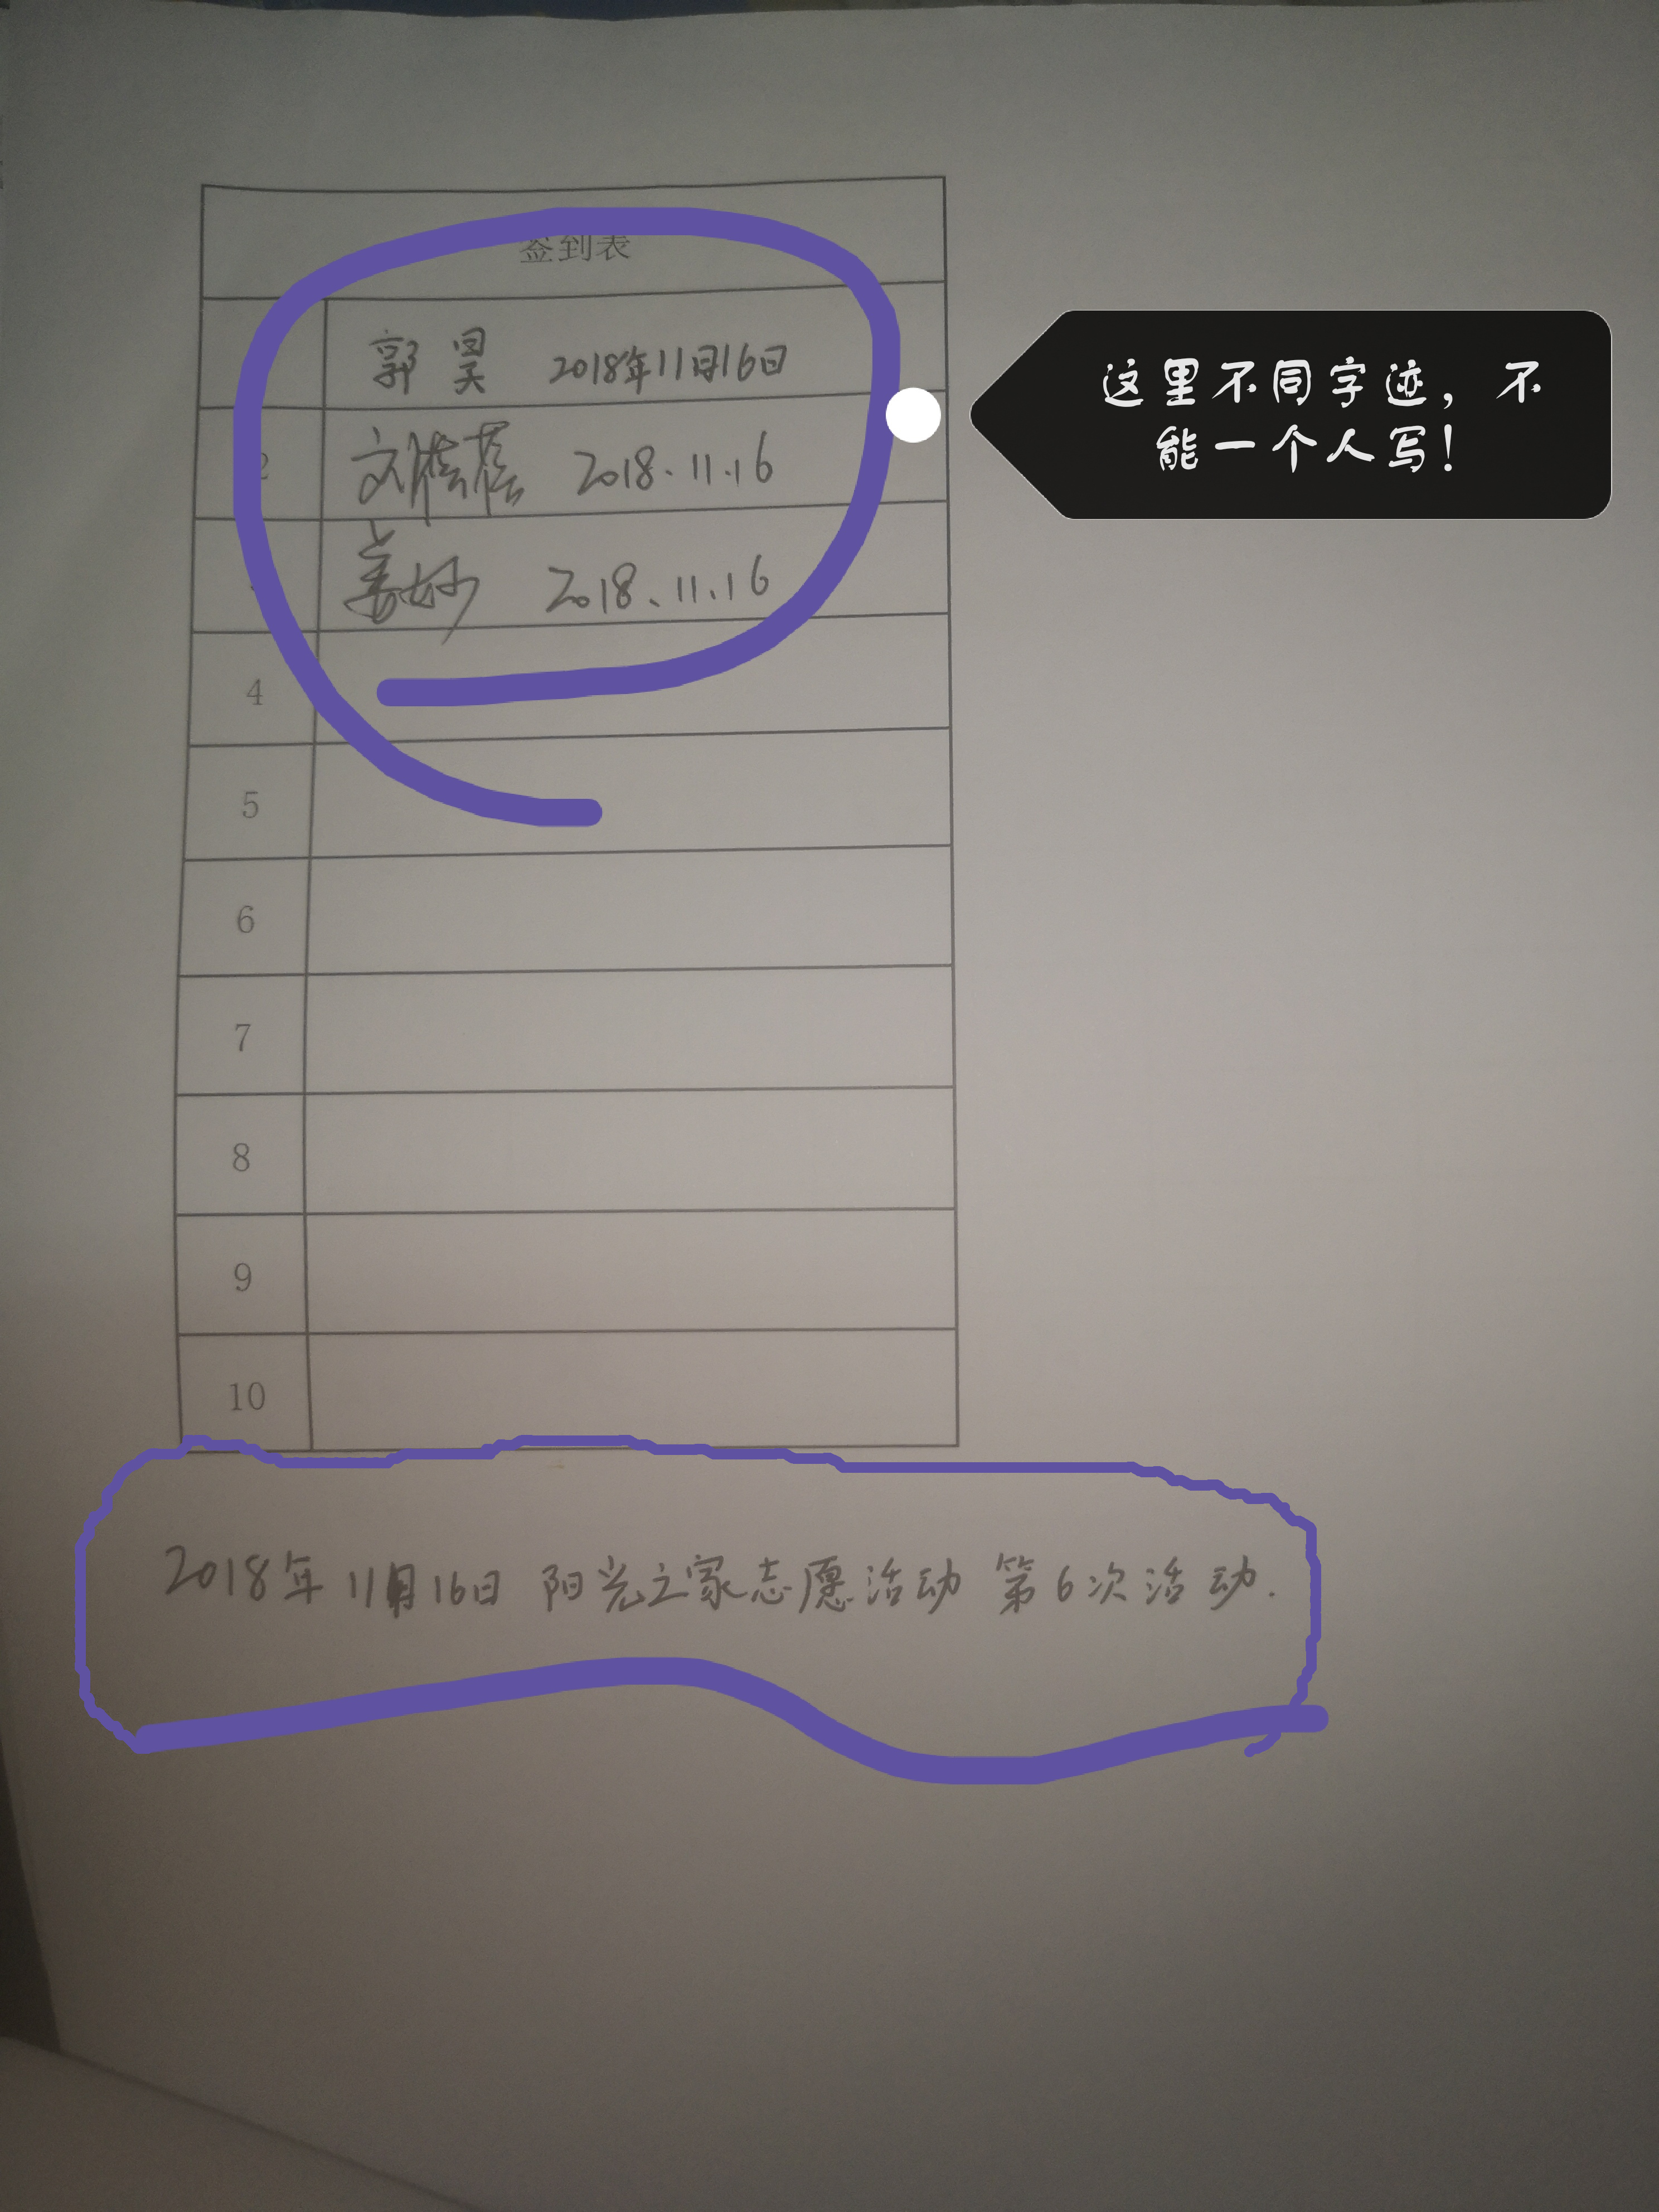 签到表
郭昊 2018年11月16日
2 2018.11.16
姜妙 2018.11.16
4
5
6
7
8
9
10
这里不同字迹，不
能一个人写！
2018年11月16日 阳光之家志愿活动 第6次活动.